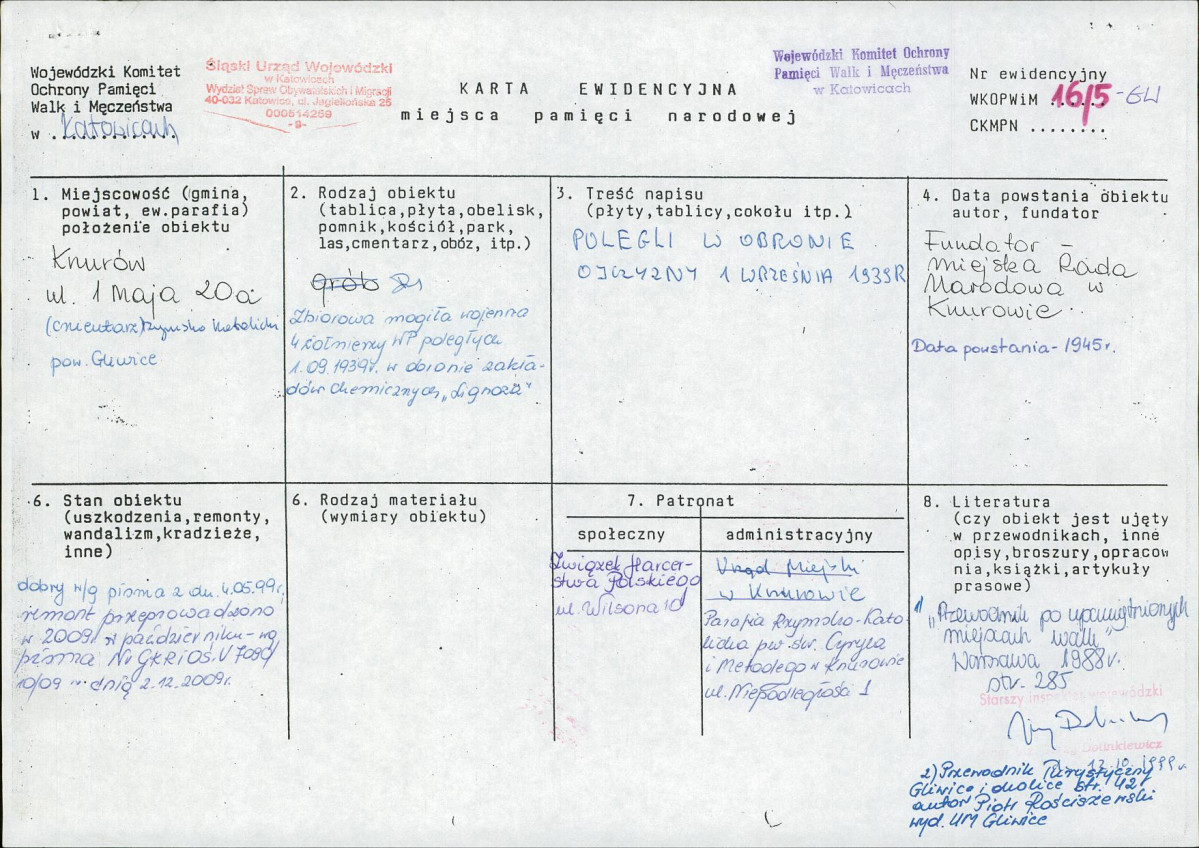 Wojewódzki Komitet
Ochrony Pamięci
Walk i Męczeństwa
w Katowicach
Śląski Urząd Wojewódzki
w Katowicach
Wydział Spraw Obywatelskich i Migracji
40-032 Katowice, ul. Jagiellońska 25
000514259
-9-
KARTA EWIDENCYJNA
miejsca pamięci narodowej
Wojewódzki Komitet Ochrony
Pamięci Walk i Męczeństwa
w Katowicach
Nr ewidencyjny
WKOPWiM 16/5-GW
CKMPN ........
1. Miejscowość (gmina,
powiat, ew.parafia)
położenie obiektu
Knurów
ul. 1 Maja 20a
(cmentarz) Rzymsko Katolicki
pow. Gliwice
2. Rodzaj obiektu
(tablica,płyta,obelisk,
pomnik,kościół,park,
las,cmentarz,obóz, itp.)
grób
Zbiorowa mogiła wojenna
4 żołnierzy WP poległych
1.09.1939r. w obronie zakła-
dów chemicznych „Lignoza"
3. Treść napisu
(płyty,tablicy,cokołu itp.)
POLEGLI W OBRONIE
OJCZYZNY 1 WRZEŚNIA 1939R
4. Data powstania obiektu
autor, fundator
Fundator -
Miejska Rada
Narodowa w
Knurowie
Data powstania - 1945r.
6. Stan obiektu
(uszkodzenia,remonty,
wandalizm,kradzieże,
inne)
dobry w/g pisma z dn. 4.05.99r.
remont przeprowadzono
w 2009r. w październiku - wg
pisma Nr GKRiOŚ.V 7090
10/09 z dnia 2.12.2009r.
6. Rodzaj materiału
(wymiary obiektu)
7. Patronat
społeczny
Związek Harcer-
stwa Polskiego
ul. Wilsona 10
administracyjny
Urząd Miejski
w Knurowie
Parafia Rzymsko-Kato
licka pw. św. Cyryla
i Metodego w Knurowie
ul. Niepodległości 1
8. Literatura
(czy obiekt jest ujęty
w przewodnikach, inne
opisy,broszury,opracow
nia,książki,artykuły
prasowe)
1) „Przewodnik po upamiętnionych
miejscach walk"
Warszawa 1988r.
str. 285
Starszy inspektor wojewódzki
12.10.1999r.
2) Przewodnik Turystyczny
Gliwice i okolice str. 42
autor Piotr Rościszewski
wyd. UM Gliwice